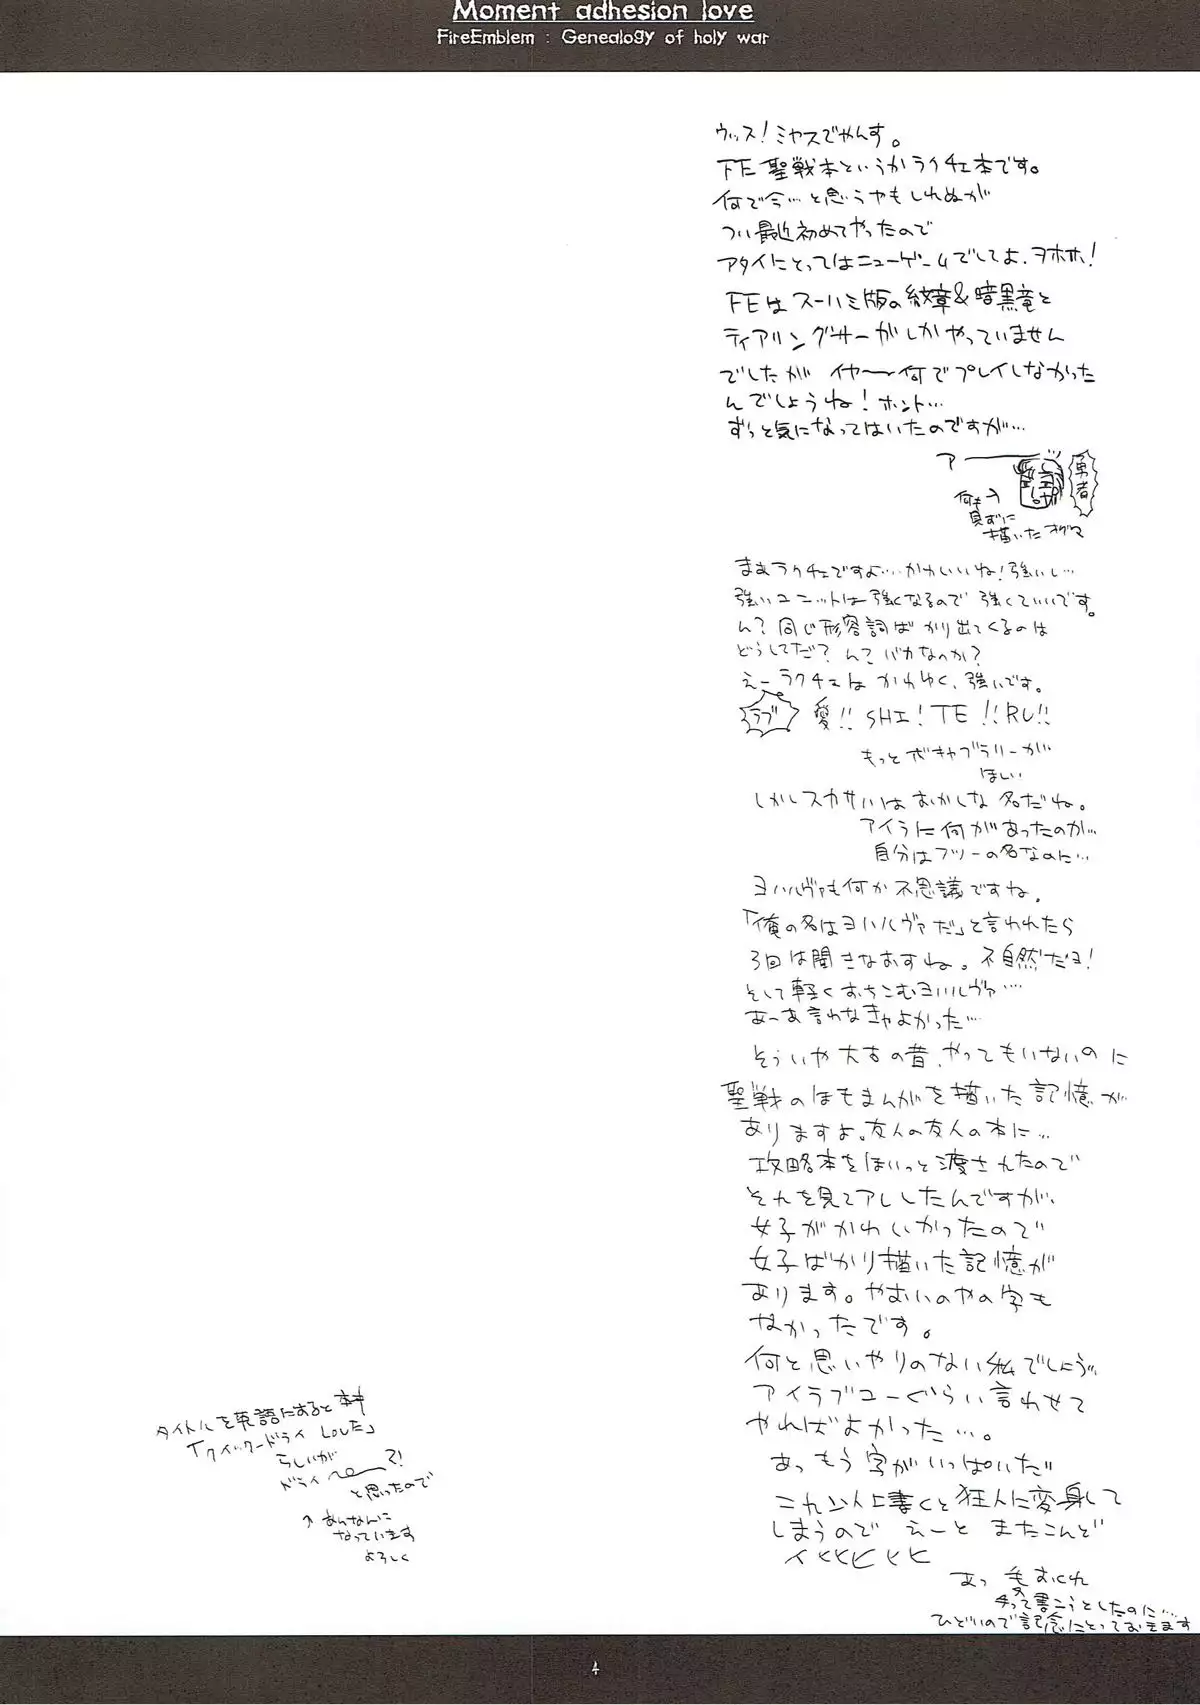 Moment adhesion love
FireEmblem : Genealogy of holy war
ウィッス!ミヤスでやんす。
FE 聖戦本というかラクチェ本です。
何で今…と思うやもしれぬが
つい最近初めてやったので
アタイにとってはニューゲームでしてよ、ヲホホ!
FEはスーハミ版の紋章&暗黒竜と
ティアリングサーガしかやっていません
でしたが イヤ〜何でプレイしなかった
んでしょうね!ホント…
ずっと気になってはいたのですが…
アー
勇者
何も→
見ずに
描いたオグマ
まぁラクチェですよ…かわいいね!強いし…
強いユニットは強くなるので強くていいです。
ん?同じ形容詞ばかり出てくるのは
どうしてだ?んで バカなのか?
えーラクチェはかわゆく、強いです。
ラブ 愛!! SHI!TE!!RU!!
もっとボキャブラリーが
ほしい
しかしスカサハはおかしな名だね。
アイラに何があったのか…
自分はフツーの名なのに…
ヨハルヴァも何か不思議ですね。
「俺の名はヨハルヴァだ」と言われたら
3回は聞きなおすね。不自然だヨ!
そして軽くおちこむヨハルヴァ…
あーあ言わなきゃよかった…
そういや大古の昔、やってもいないのに
聖戦のほもまんがを描いた記憶が
ありますよ。友人の友人の本に…
攻略本をほいっと渡されたので
それを見てアレしたんですが、
女子がかわいかったので
女子ばかり描いた記憶が
あります。やおいのやの字も
なかったです。
何と思いやりのない私でしょう…
アイラブユーぐらい言わせて
やればよかった…。
あっもう字がいっぱいだ
これ以上書くと狂人に変身して
しまうので えーと またこんど
イヒヒヒヒヒ
あっ 愛おくれ
って書こうとしたのに…
ひどいので記念にとっておきます
タイトルを英語にすると
「クイックードライ Loveだ」
らしいが
ドライ〜?!
と思ったので
↑あんなんに
なっています
よろしく
4